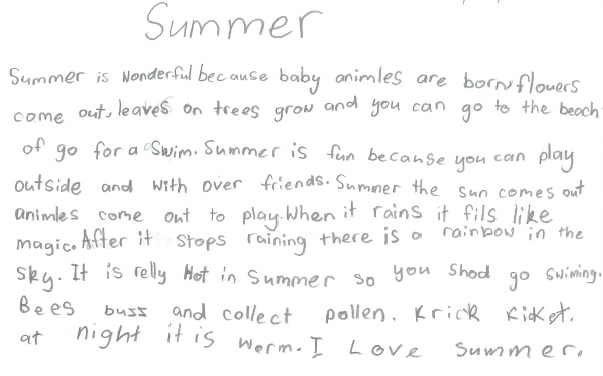 Summer
Summer is Wonderful because baby animles are born, flowers
come out, leaves on trees grow and you can go to the beach
of go for a Swim. Summer is fun because you can play
outside and with over friends. Summer the sun comes out
animles come out to play. When it rains it fils like
magic. After it stops raining there is a rainbow in the
sky. It is relly Hot in Summer so you shod go swiming.
Bees buss and collect pollen. Krick Kiket.
at night it is worm. I Love summer.